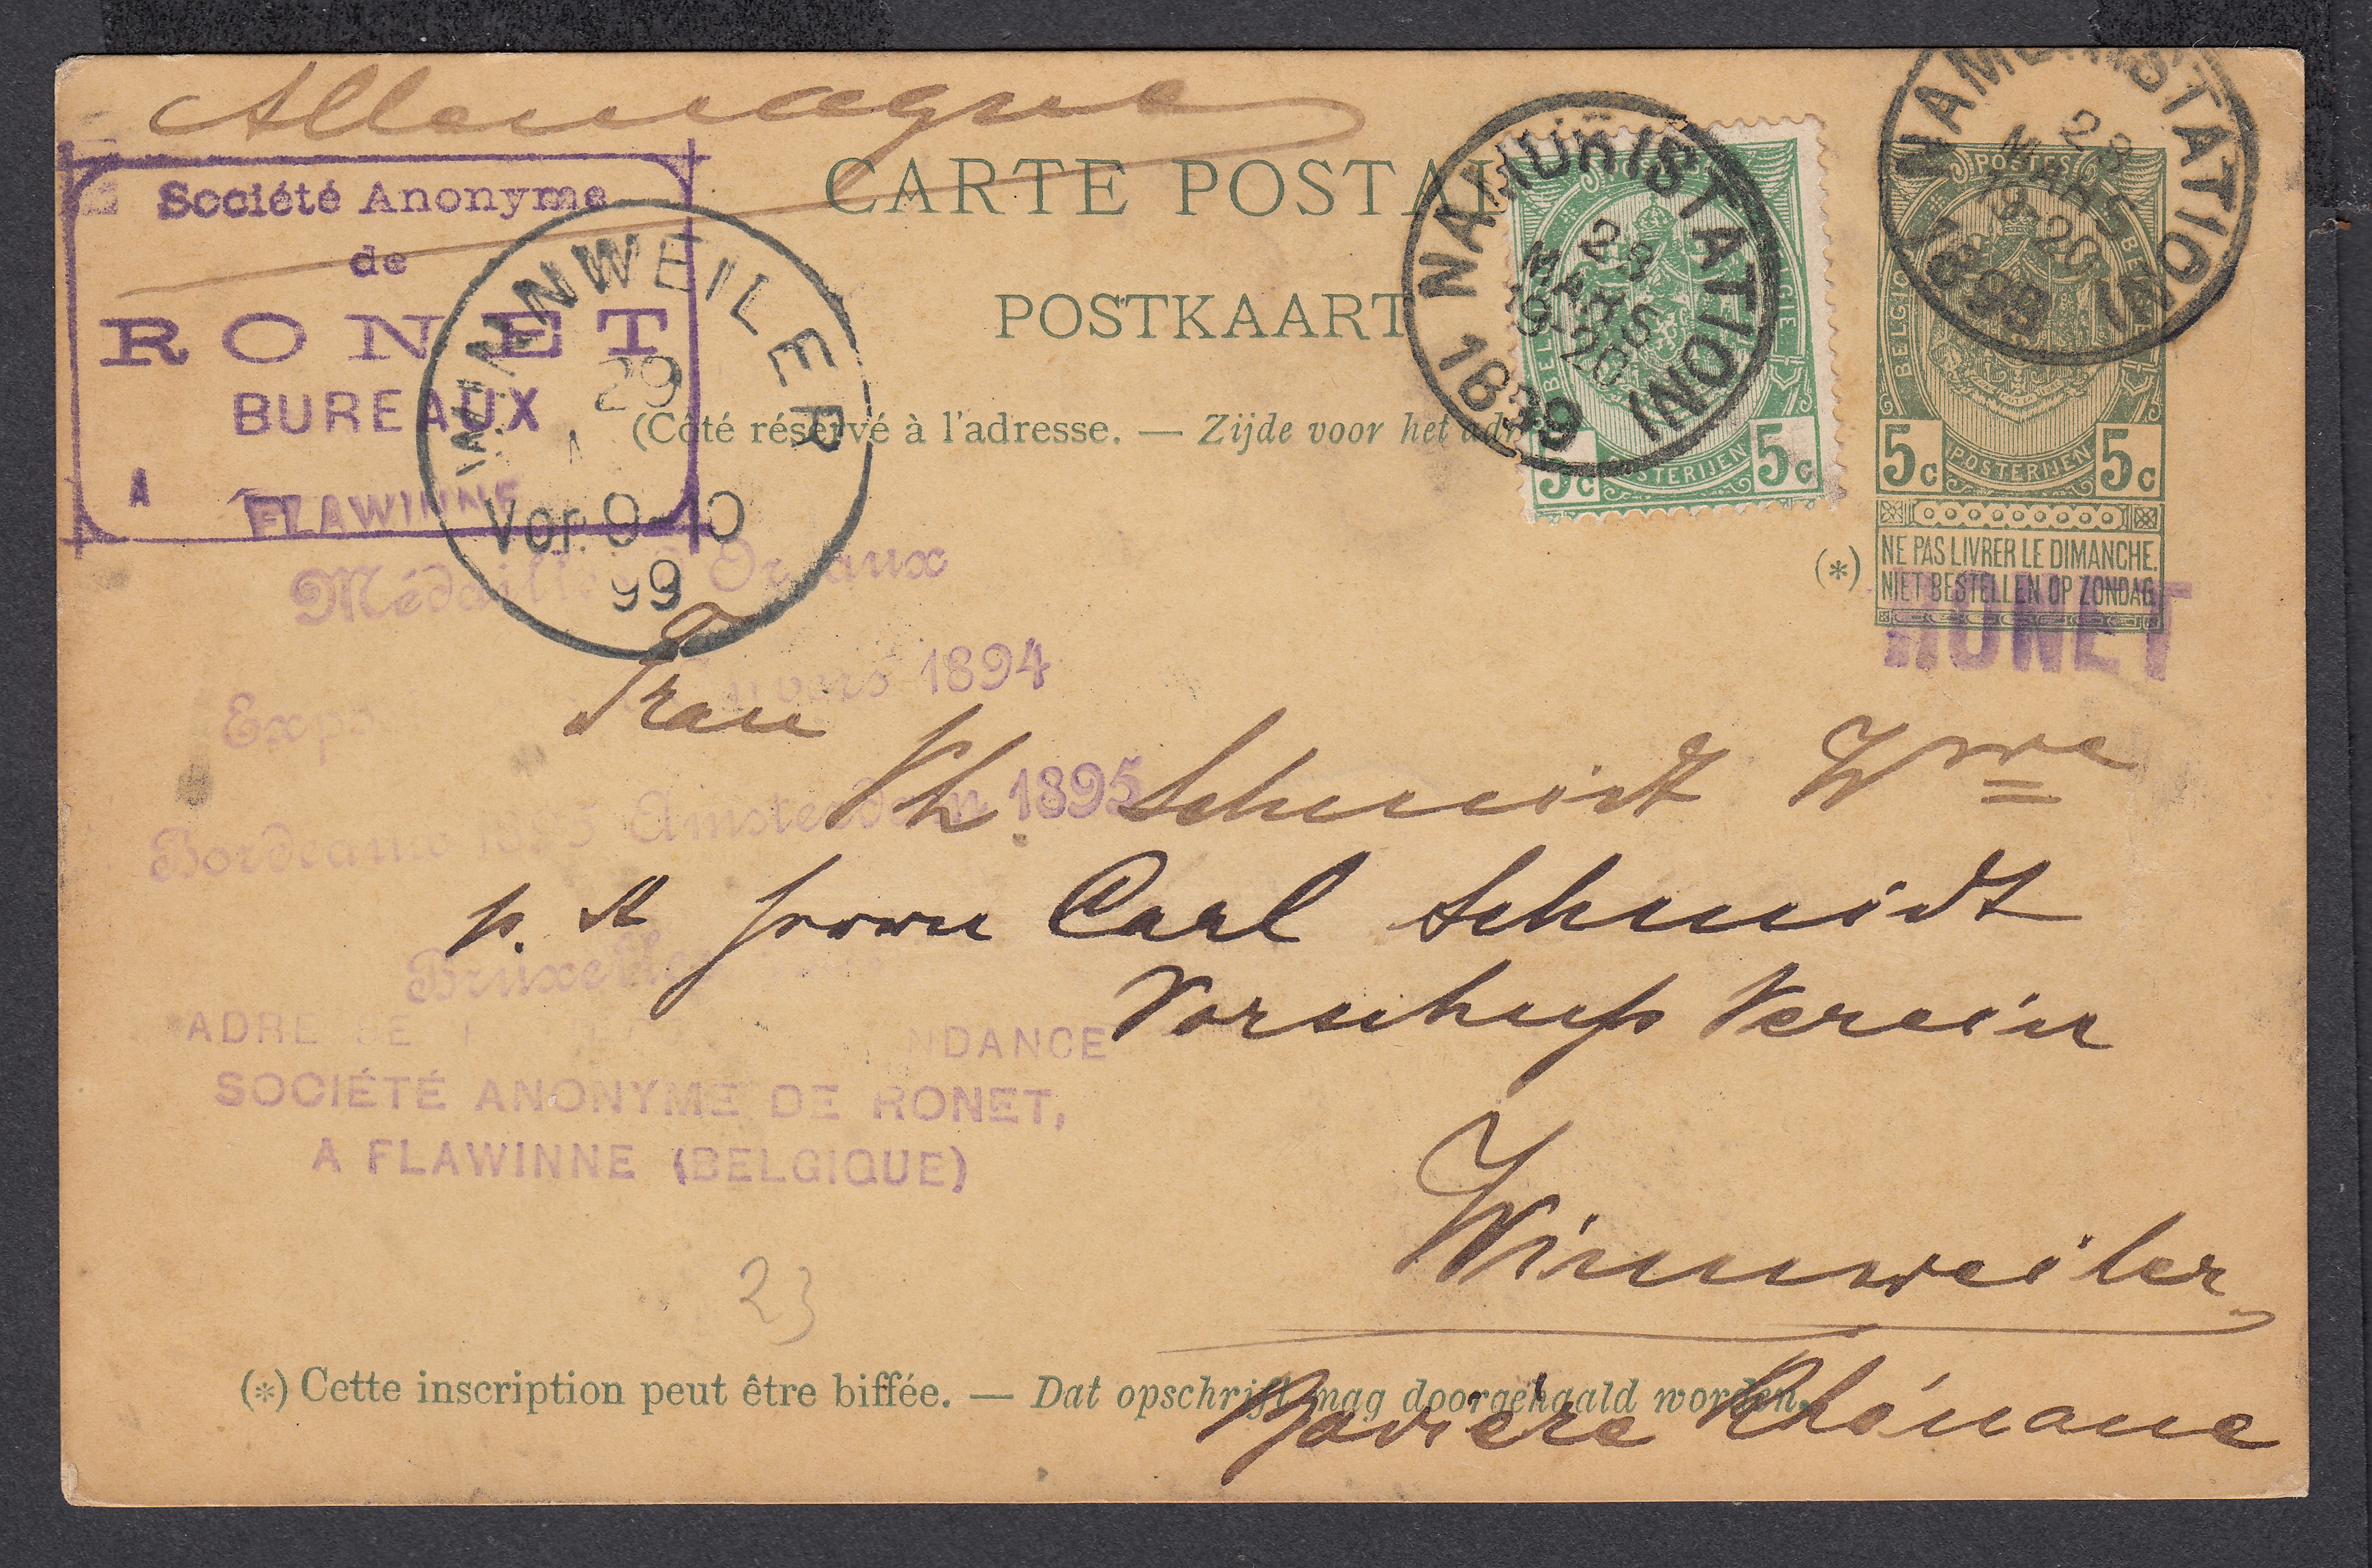 Allemagne
Société Anonyme
de
RONET
BUREAUX
A FLAWINNE
WINNWEILER
29
Vor. 9-10
99
CARTE POSTAL
POSTKAART
(Côté réservé à l'adresse. — Zijde voor het adr
NAMUR (STATION)
23
MARS
19-20
1899
NAMUR (STATION)
23
MARS
19-20
1899
BELGIQUE
POSTERIJEN
5c 5c
POSTES
BELGIQUE BELGIË
POSTERIJEN
5c 5c
(*)
NE PAS LIVRER LE DIMANCHE.
NIET BESTELLEN OP ZONDAG.
RONET
Médailles Or
Expo Anvers 1894
Bordeaux 1895 Amsterdam 1895
Bruxelles
ADRESSE NDANCE
SOCIÉTÉ ANONYME DE RONET,
A FLAWINNE (BELGIQUE)
Frau
Ph. Schmidt Wwe
p. A Carl Schmidt
Vorschuß Verein
Winnweiler
Bavière Rhénane
23
(*) Cette inscription peut être biffée. — Dat opschrift mag doorgehaald worden.